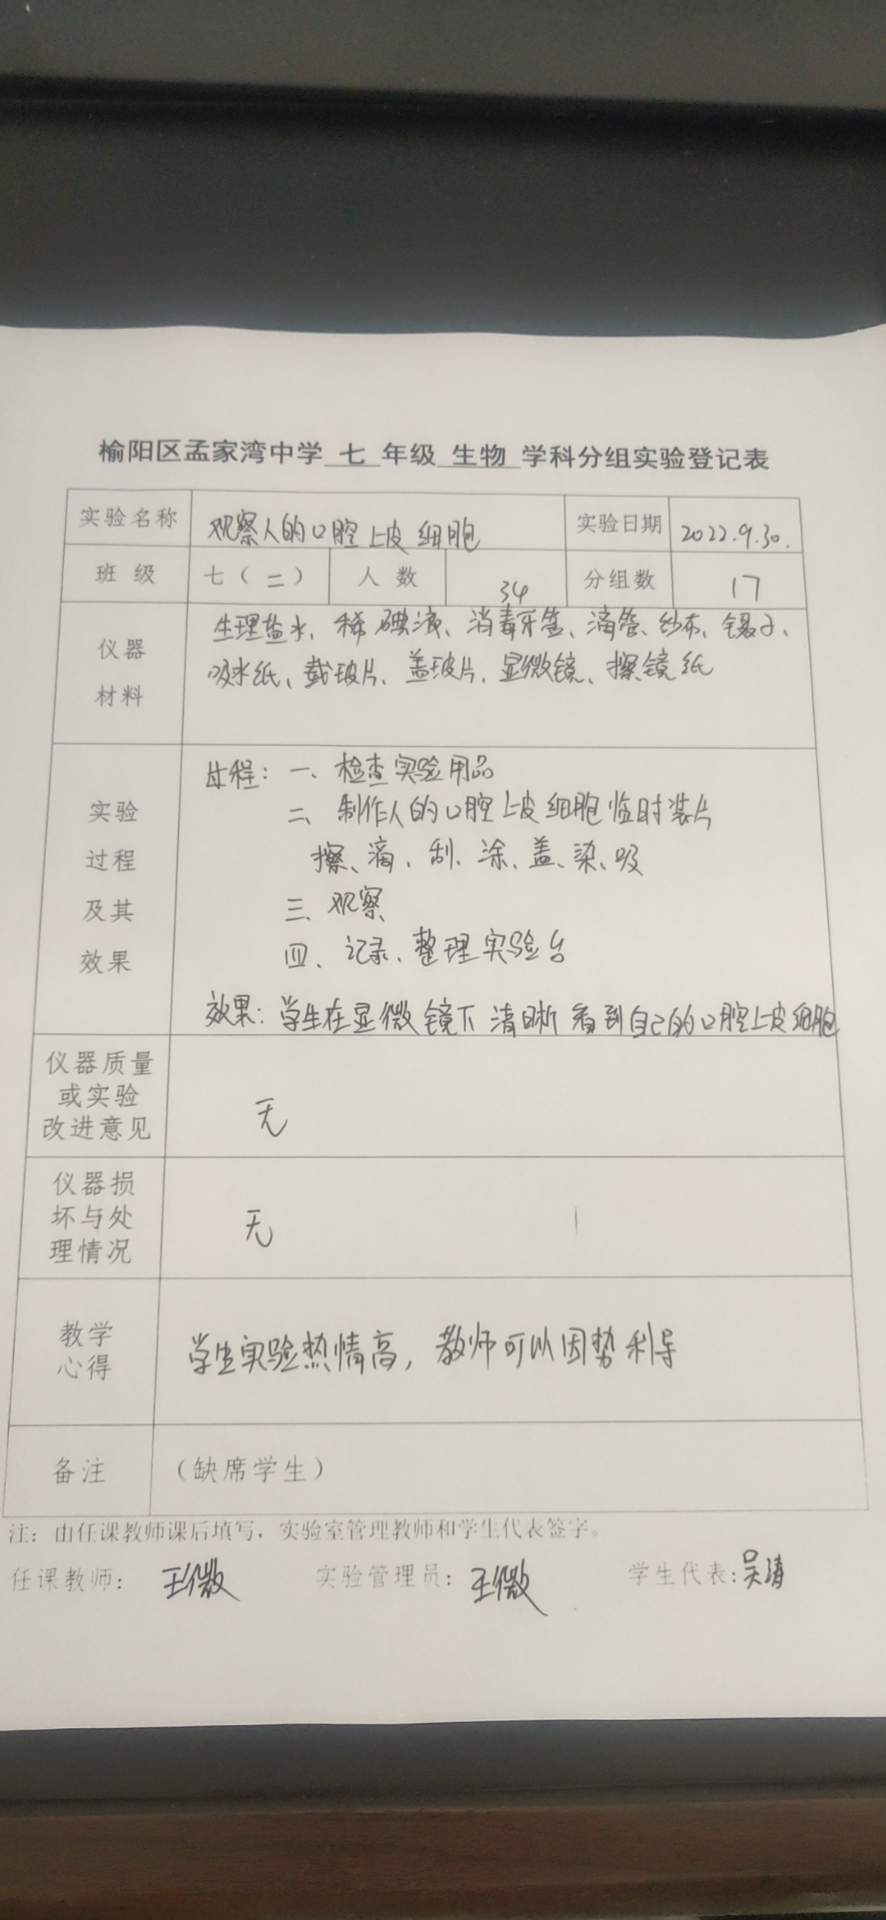 榆阳区孟家湾中学 七 年级 生物 学科分组实验登记表
实验名称 观察人的口腔上皮细胞 实验日期 2022.9.30.
班 级 七（二） 人 数 34 分组数 17
仪器
材料
生理盐水、稀碘液、消毒牙签、滴管、纱布、镊子、
吸水纸、载玻片、盖玻片、显微镜、擦镜纸
实验
过程
及其
效果
过程：一、检查实验用品
二、制作人的口腔上皮细胞临时装片
擦、滴、刮、涂、盖、染、吸
三、观察
四、记录、整理实验台
效果：学生在显微镜下清晰看到自己的口腔上皮细胞
仪器质量
或实验
改进意见
无
仪器损
坏与处
理情况
无
教学
心得
学生实验热情高，教师可以因势利导
备注 （缺席学生）
注：由任课教师课后填写，实验室管理教师和学生代表签字。
任课教师：王微 实验管理员：王微 学生代表：吴清